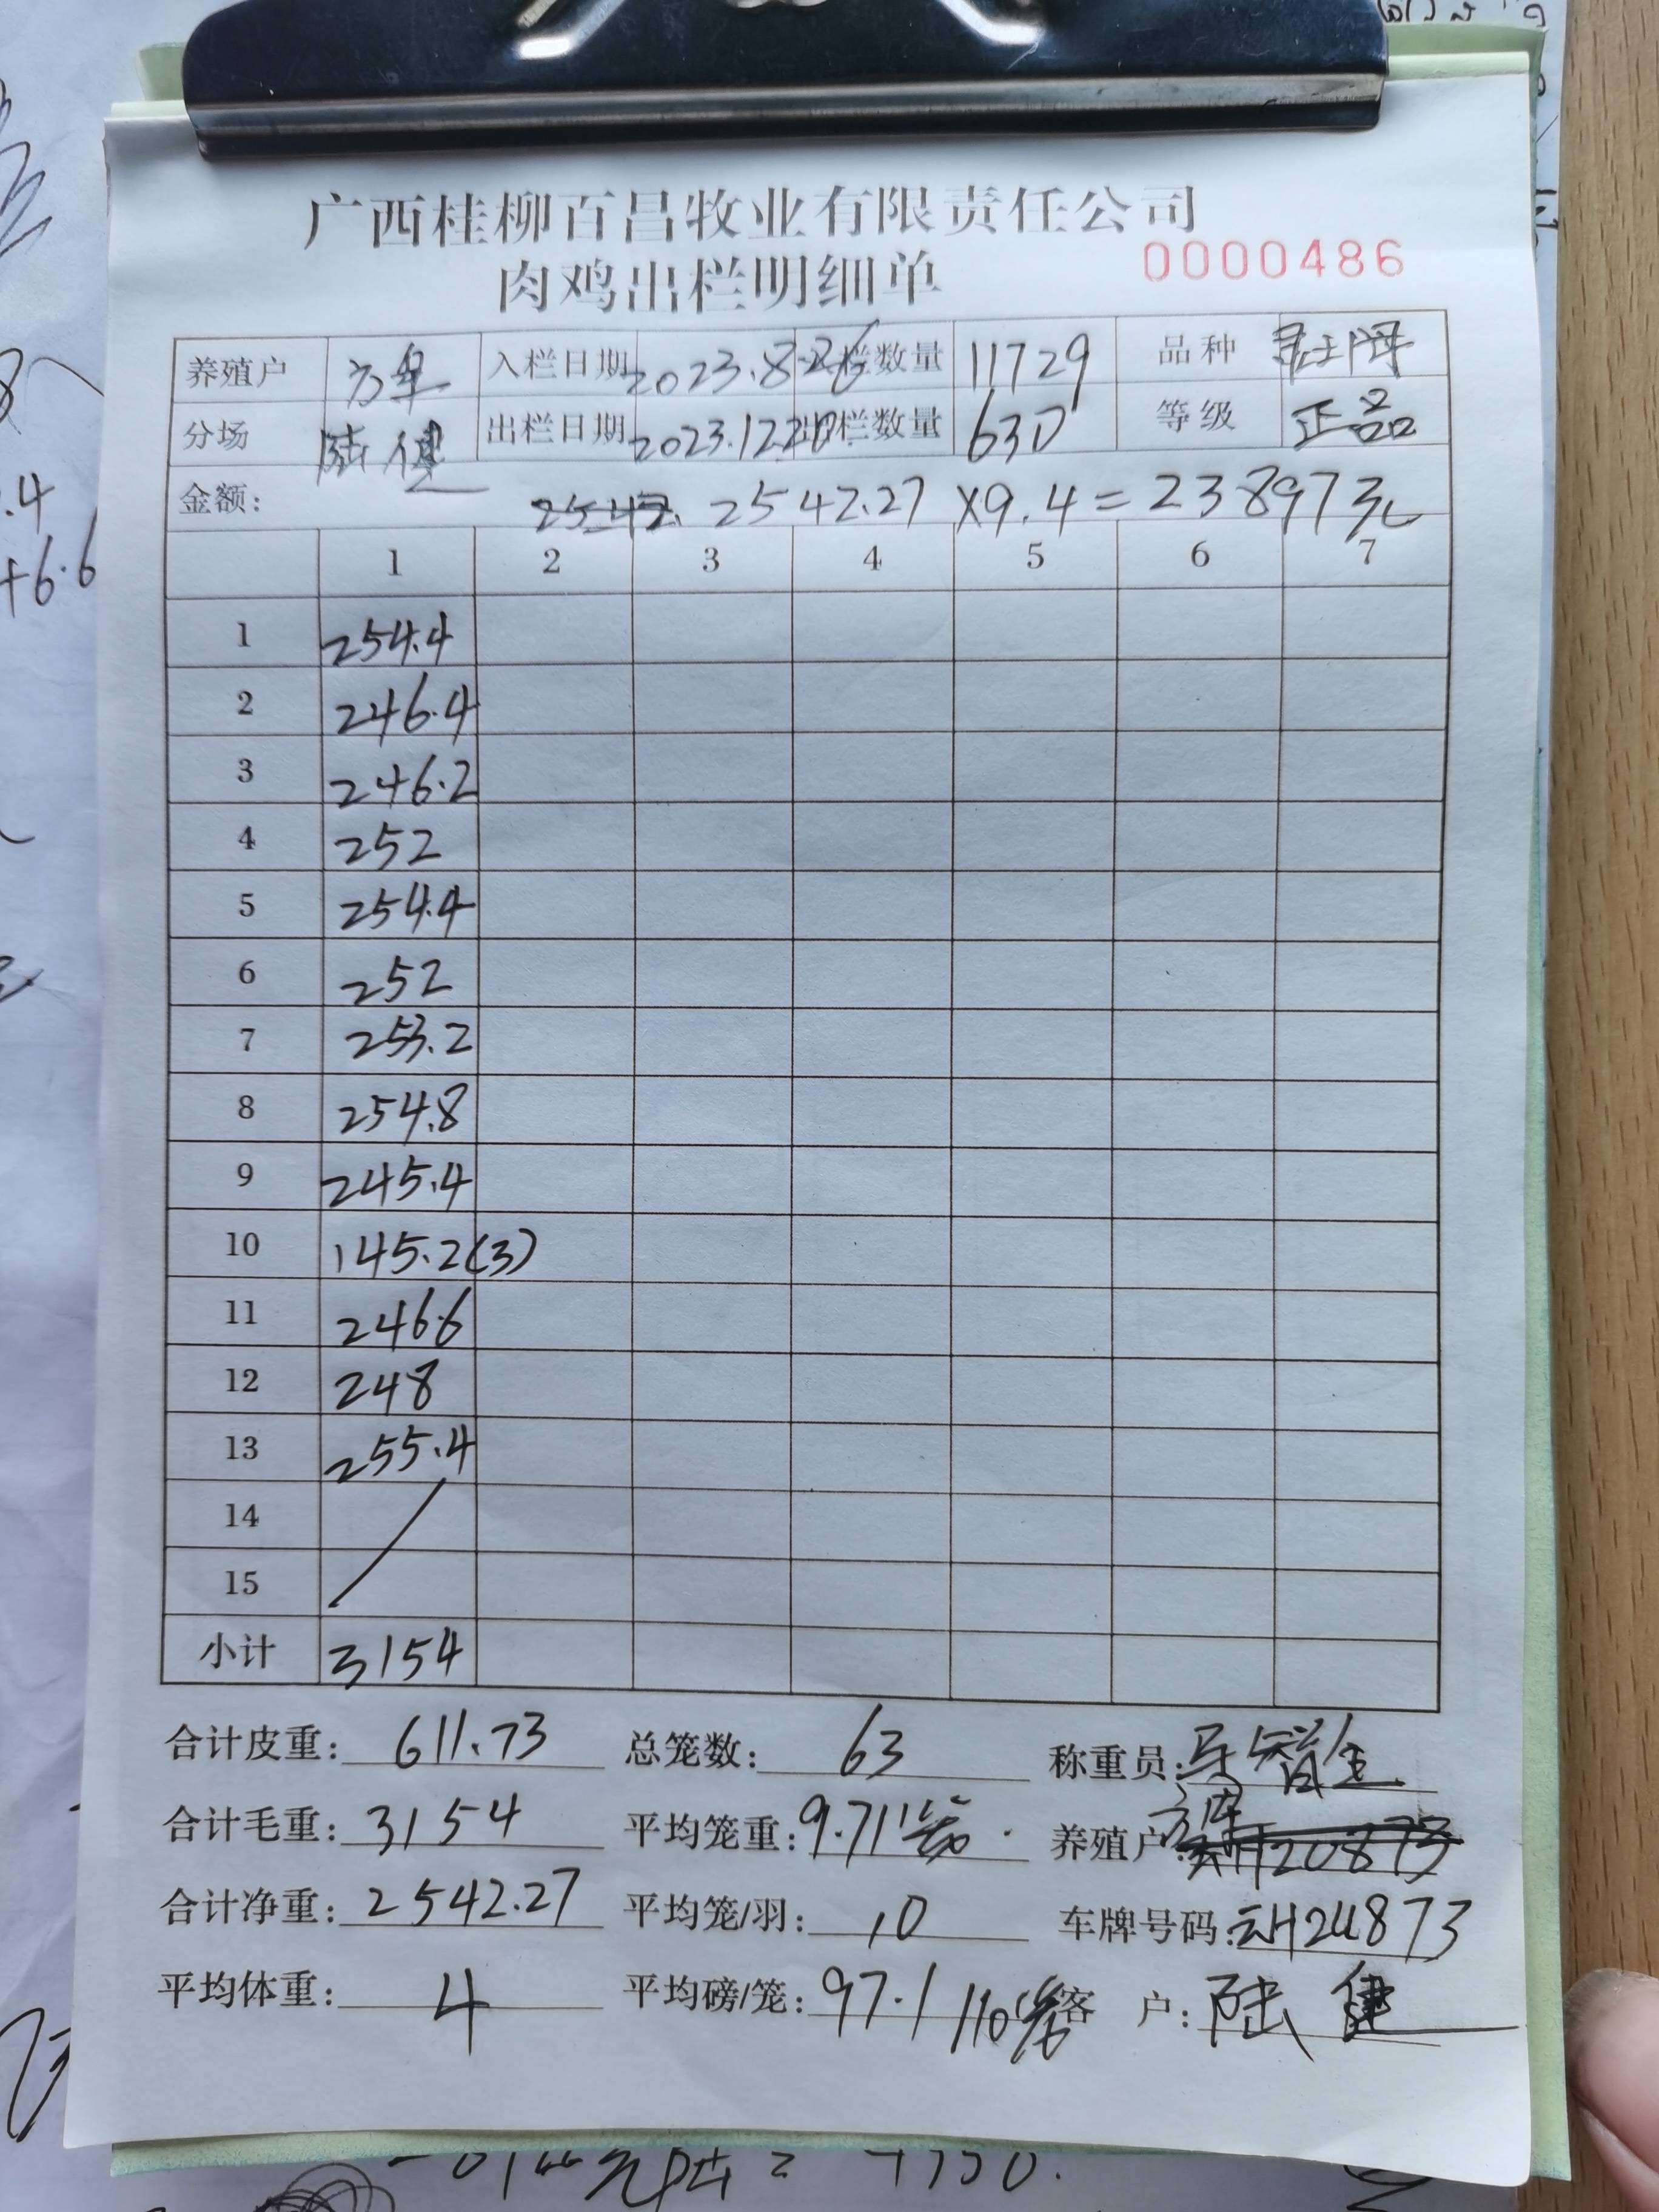 广西桂柳百昌牧业有限责任公司
肉鸡出栏明细单 0000486
养殖户 入栏日期 2023.8.26 栏数量 11729 品种
分场 陆健 出栏日期 2023.12.20 出栏数量 630 等级 正品
金额: 2542.27×9.4=23897元
1 2 3 4 5 6 7
1 254.4
2 246.4
3 246.2
4 252
5 254.4
6 252
7 253.2
8 254.8
9 245.4
10 145.2(3)
11 2466
12 248
13 255.4
14
15
小计 3154
合计皮重: 611.73 总笼数: 63 称重员:
合计毛重: 3154 平均笼重: 9.71 养殖户:
合计净重: 2542.27 平均笼/羽: 10 车牌号码:
平均体重: 4 平均磅/笼: 97.1/10 客 户: 陆健